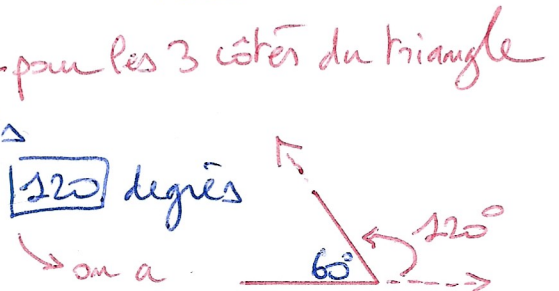 pour les 3 côtés du triangle
120 degrés
on a
60°
120°